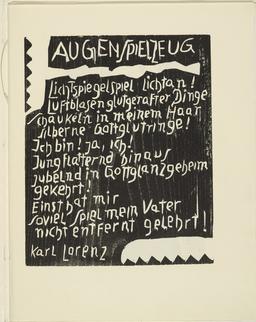 AUGENSPIELZEUG
Lichtspiegelspiel lichtan!
Luftblasenglutgeraffter Dinge
schaukeln in meinem Haar
silberne Gottglutringe!
Ich bin! ja, ich!
Jungflatternd hinaus
jubelnd in Gottglanzgeheim
gekehrt!
Einst hat mir
soviel Spiel mein Vater
nicht entfernt gelehrt!
Karl Lorenz